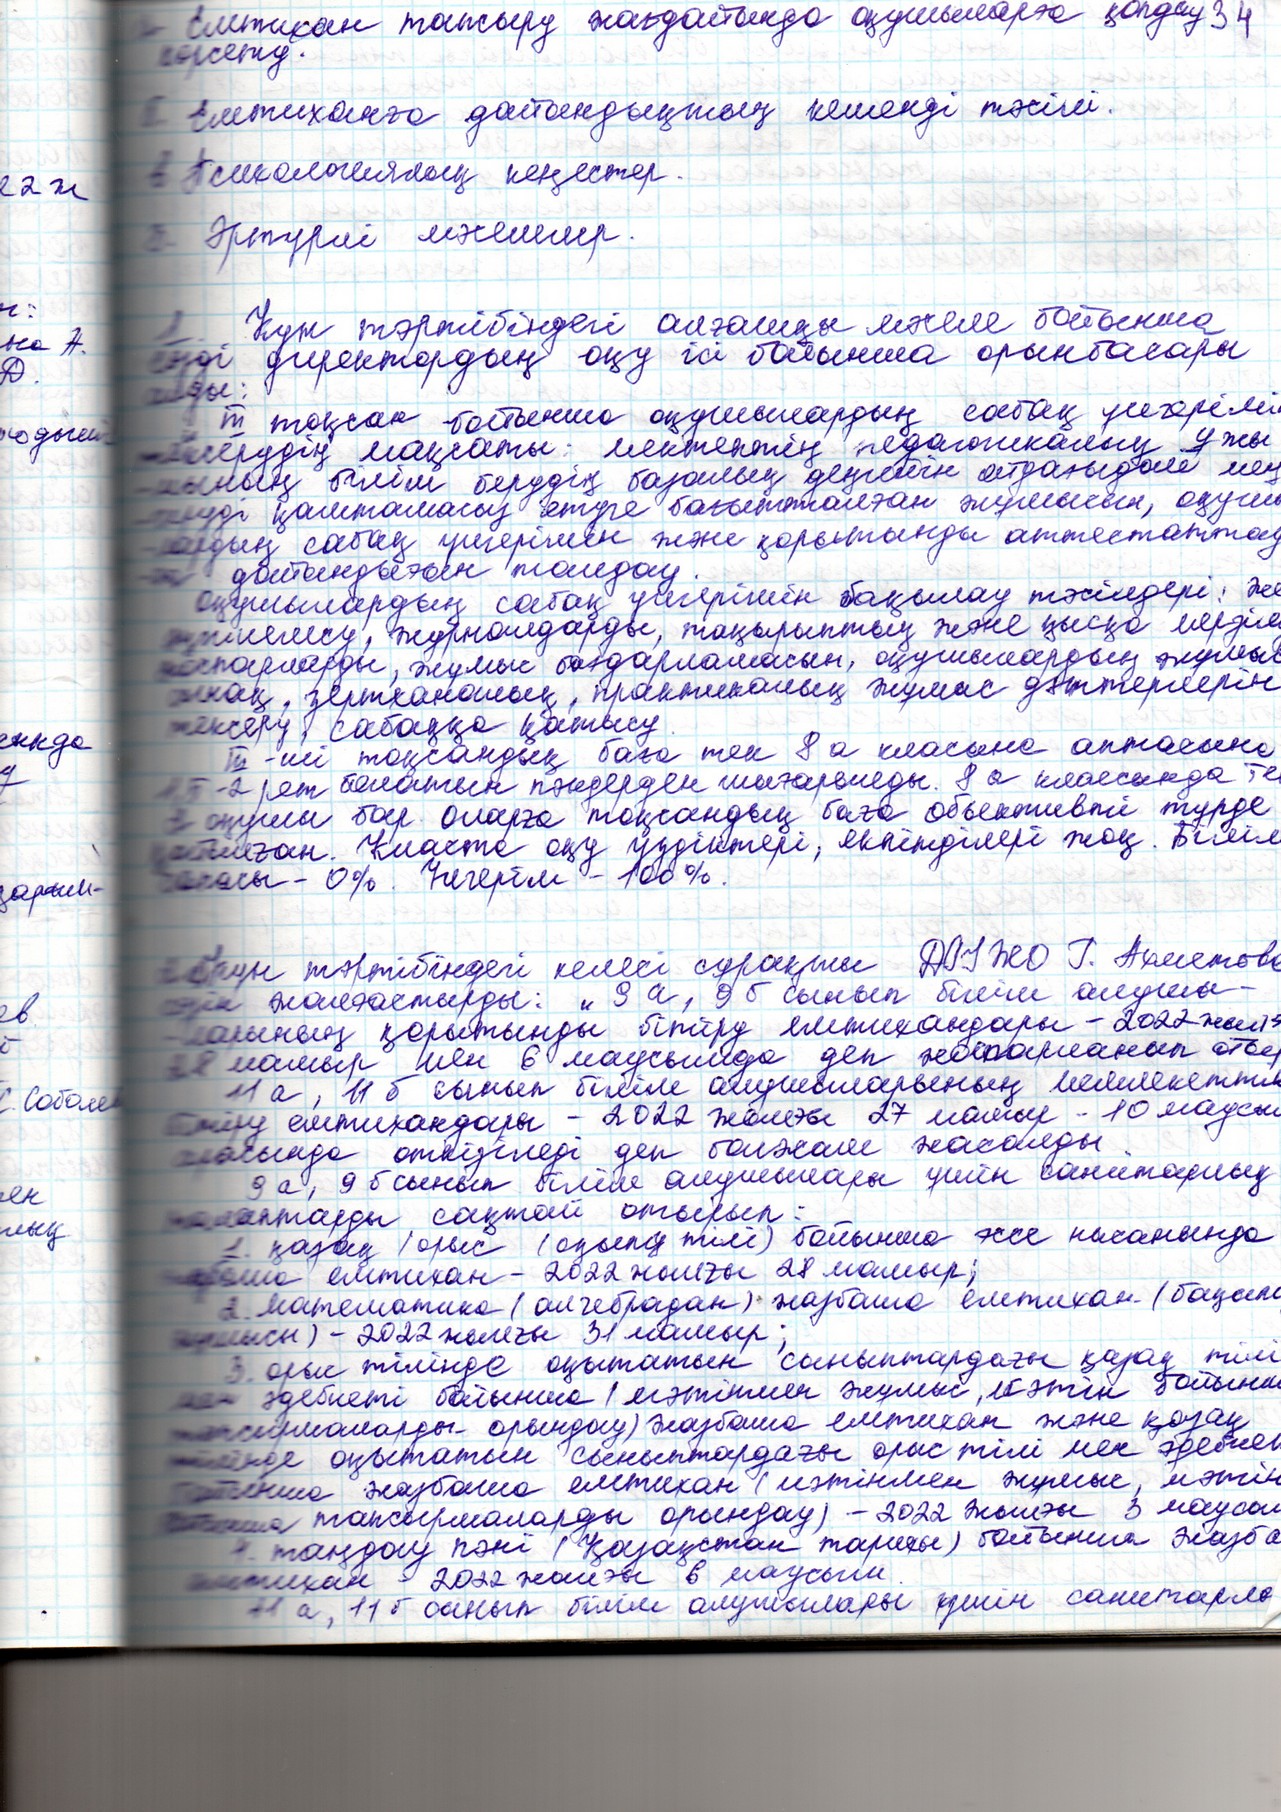 Емтихан тапсыру жағдайында оқушыларға қолдау 34
көрсету.
Емтиханға дайындықтың кешенді тәсілі.
Психологиялық кеңестер.
Әртүрлі мәселелер.
22 ж
1. Күн тәртібіндегі алғашқы мәселе бойынша
сөзді директордың оқу ісі бойынша орынбасары
алды:
III тоқсан бойынша оқушылардың сабақ үлгерімін
тексерудің мақсаты: мектептің педагогикалық ұжы
-мының білім берудің базалық деңгейін отдағыдай мең
-геруді қамтамасыз етуге бағытталған жұмысын, оқушы
-лардың сабақ үлгерімен және қорытынды аттестаттау
дайындығын талдау.
Оқушылардың сабақ үлгерімін бақылау тәсілдері: же
әңгімелесу, журналдарды, тақырыптық және қысқа мерзім
жоспарларды, жұмыс бағдарламасын, оқушылардың жұмыс
сынақ, зертханалық, практикалық жұмыс дәптерлерін
тексеру, сабаққа қатысу.
III-ші тоқсандық баға тек 8 а класына аптасына
1,5-2 рет болатын пәндерден шығарылды. 8 а классында тек
3 оқушы бар. Оларға тоқсандық баға объективті түрде
қойылған. Класта оқу үздіктері, екпінділері жоқ. Білім
сапасы - 0%. Үлгерім - 100%.
Күн тәртібіндегі келесі сұрақты ДОІЖО Г. Ахметова
сөзін жалғастырды: „9 а, 9 б сынып білім алушы-
-ларының қорытынды бітіру емтихандары - 2022 жылғы
28 мамыр мен 6 маусымда деп жоспарланып отыр
11 а, 11 б сынып білім алушыларының мемлекеттік
бітіру емтихандары - 2022 жылғы 27 мамыр - 10 маусым
арасында өткізіледі деп болжам жасалды
9 а, 9 б сынып білім алушылары үшін санитарлық
талаптарды сақтай отырып:
1. қазақ /орыс (оқыту тілі) бойынша эссе нысанында
жазбаша емтихан - 2022 жылғы 28 мамыр;
2. математика (алгебрадан) жазбаша емтихан (бақылау
жұмысы) - 2022 жылғы 31 мамыр;
3. орыс тілінде оқытатын сыныптардағы қазақ тілі
мен әдебиеті бойынша (мәтінмен жұмыс, мәтін бойынша
тапсырмаларды орындау) жазбаша емтихан және қазақ
тілінде оқытатын сыныптардағы орыс тілі мен әдебиеті
бойынша жазбаша емтихан (мәтінмен жұмыс, мәтін
бойынша тапсырмаларды орындау) - 2022 жылғы 3 маусым
4. таңдау пәні (Қазақстан тарихы) бойынша жазба
емтихан - 2022 жылғы 6 маусым.
11 а, 11 б сынып білім алушылары үшін санитарлы